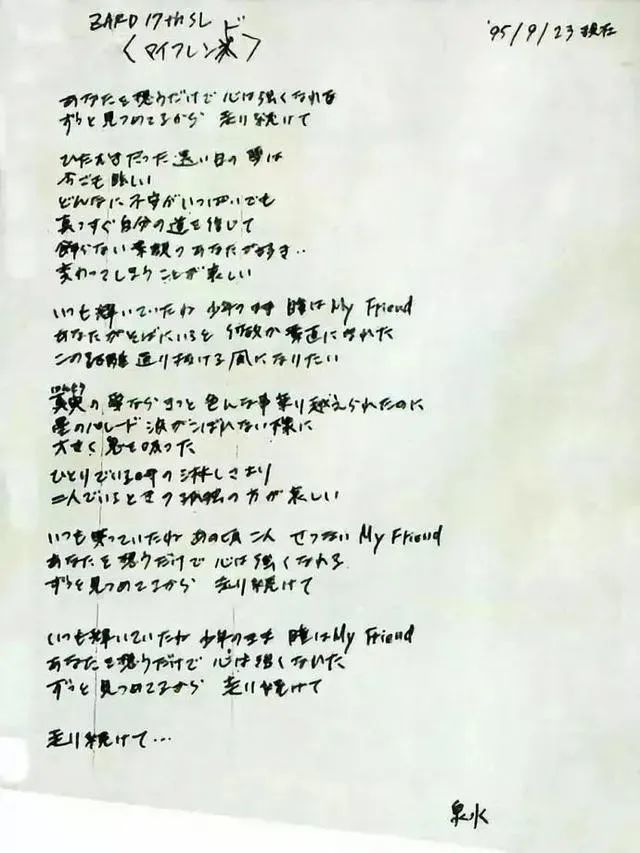 ZARD 17th SL
'95/9/23 現在
〈マイフレンド〉
あなたを想うだけで 心は強くなれる
ずっと見つめてるから 走り続けて
ひたむきだった 遠い日の夢は
今でも眩しい
どんなに不安がいっぱいでも
真っすぐ自分の道を信じて
飾らない素顔の あなたが好き..
変わってしまうことが悲しい
いつも輝いていたね 少年のまま 瞳はMy Friend
あなたがそばにいると 何故か 素直になれた
この距離 通り抜ける 風になりたい
ほんもの
真実の夢なら きっと色んな事乗り越えられたのに
星のパレード 涙がこぼれない様に
大きく息を吸った
ひとりでいる時の淋しさより
二人でいるときの孤独の方が哀しい
いつも笑っていたね あの頃 二人 せつない My Friend
あなたを想うだけで 心は強くなれる
ずっと見つめてるから 走り続けて
いつも輝いていたね 少年のまま 瞳はMy Friend
あなたを想うだけで 心は強くなれた
ずっと見つめてるから 走り続けて
走り続けて...
泉水